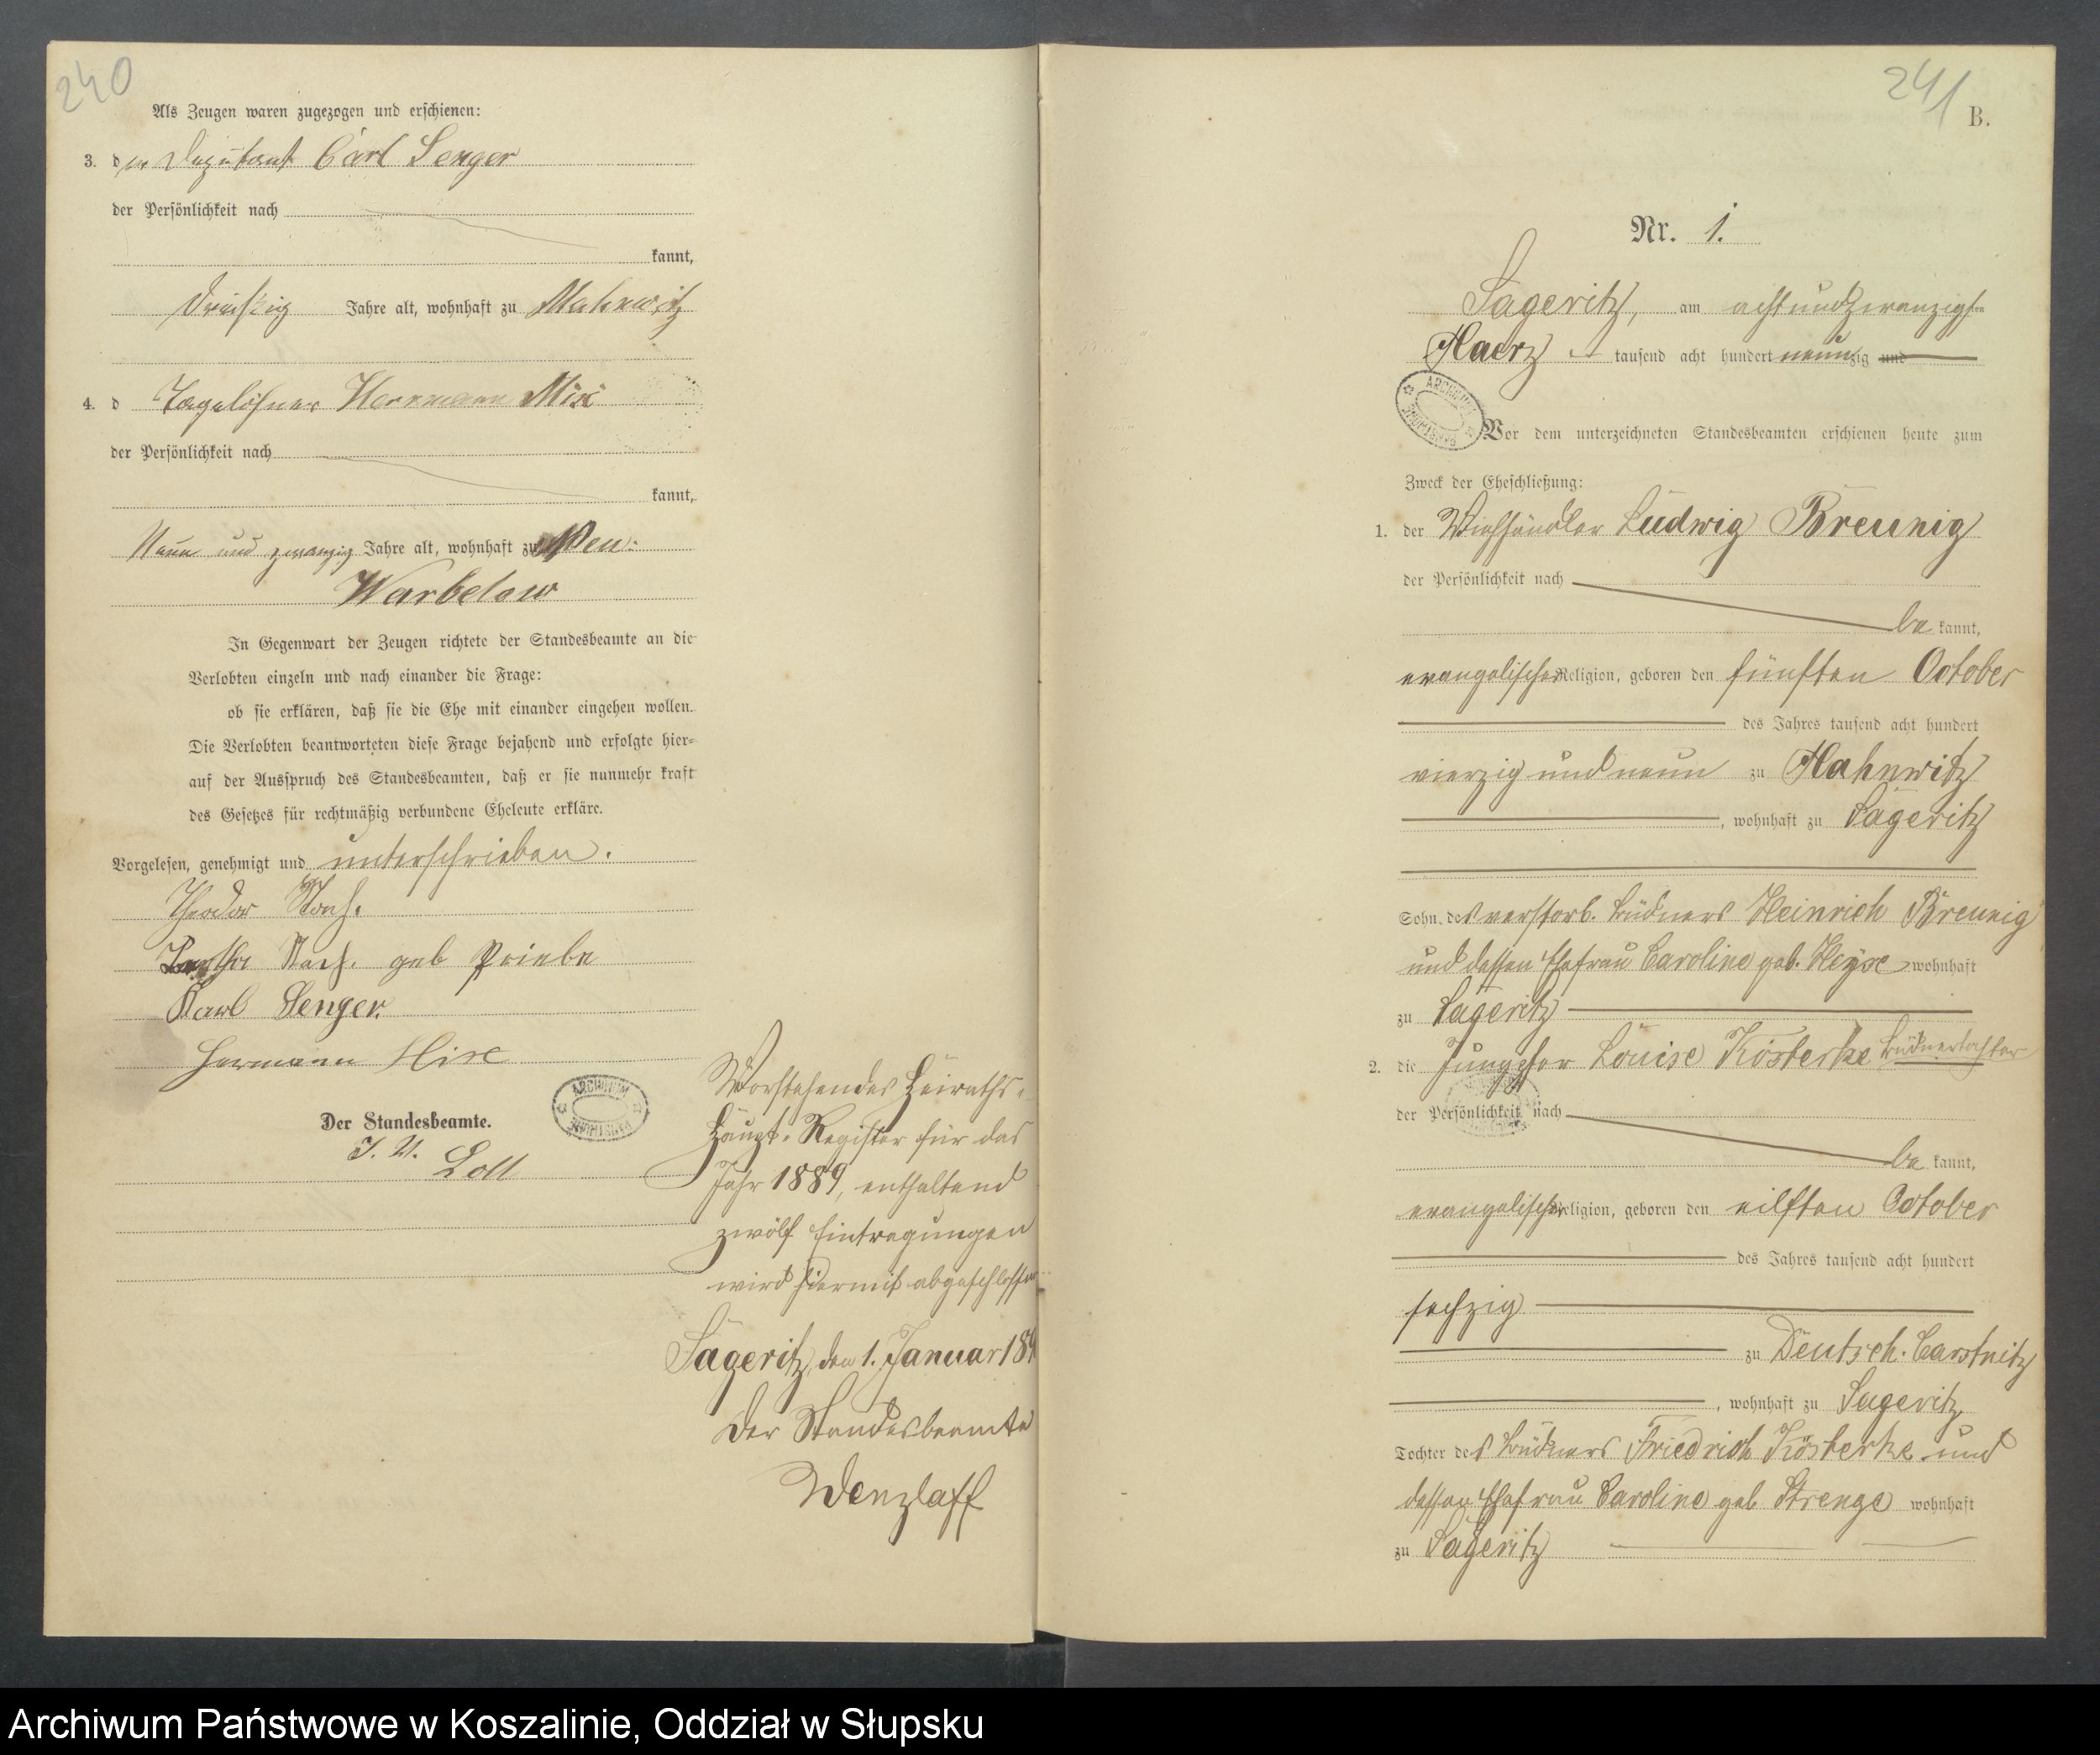 240
Als Zeugen waren zugezogen und erschienen:
3. der Deputant Carl Senger
der Persönlichkeit nach
kannt,
dreißig Jahre alt, wohnhaft zu Mahnwitz
4. d Tagelöhner Herrmann Mix
der Persönlichkeit nach
kannt,
Neun und zwanzig Jahre alt, wohnhaft zu Neu-
Warbelow
In Gegenwart der Zeugen richtete der Standesbeamte an die
Verlobten einzeln und nach einander die Frage:
ob sie erklären, daß sie die Ehe mit einander eingehen wollen.
Die Verlobten beantworteten diese Frage bejahend und erfolgte hier-
auf der Ausspruch des Standesbeamten, daß er sie nunmehr kraft
des Gesetzes für rechtmäßig verbundene Eheleute erkläre.
Vorgelesen, genehmigt und unterschrieben.
Theodor
geb Priebe
Karl Senger.
Hermann Mix
Der Standesbeamte.
Vorstehendes Heiraths-
Haupt-Register für das
Jahr 1889, enthaltend
zwölf Eintragungen
wird hiermit abgeschlossen
Sageritz, den 1. Januar 18
Der Standesbeamte
Wenzlaff
241
B.
Nr. 1.
Sageritz, am achtundzwanzigsten
Maerz tausend acht hundert neunzig und
Vor dem unterzeichneten Standesbeamten erschienen heute zum
Zweck der Eheschließung:
1. der Viehhändler Ludwig Breunig
der Persönlichkeit nach
be kannt,
evangelischer Religion, geboren den fünften October
des Jahres tausend acht hundert
vierzig und neun zu Mahnwitz
, wohnhaft zu Sageritz
Sohn des verstorb. Büdners Heinrich Breunig
und dessen Ehefrau Caroline geb. Heyse wohnhaft
zu Sageritz
2. die Jungfer Louise Kösterke Büdnertochter
der Persönlichkeit nach
be kannt,
evangelischer Religion, geboren den eilften October
des Jahres tausend acht hundert
sechzig
zu Deutsch-Carstnitz
, wohnhaft zu Sageritz
Tochter des Büdners Friedrich Kösterke und
dessen Ehefrau Caroline geb Strenge wohnhaft
zu Sageritz
Archiwum Państwowe w Koszalinie, Oddział w Słupsku